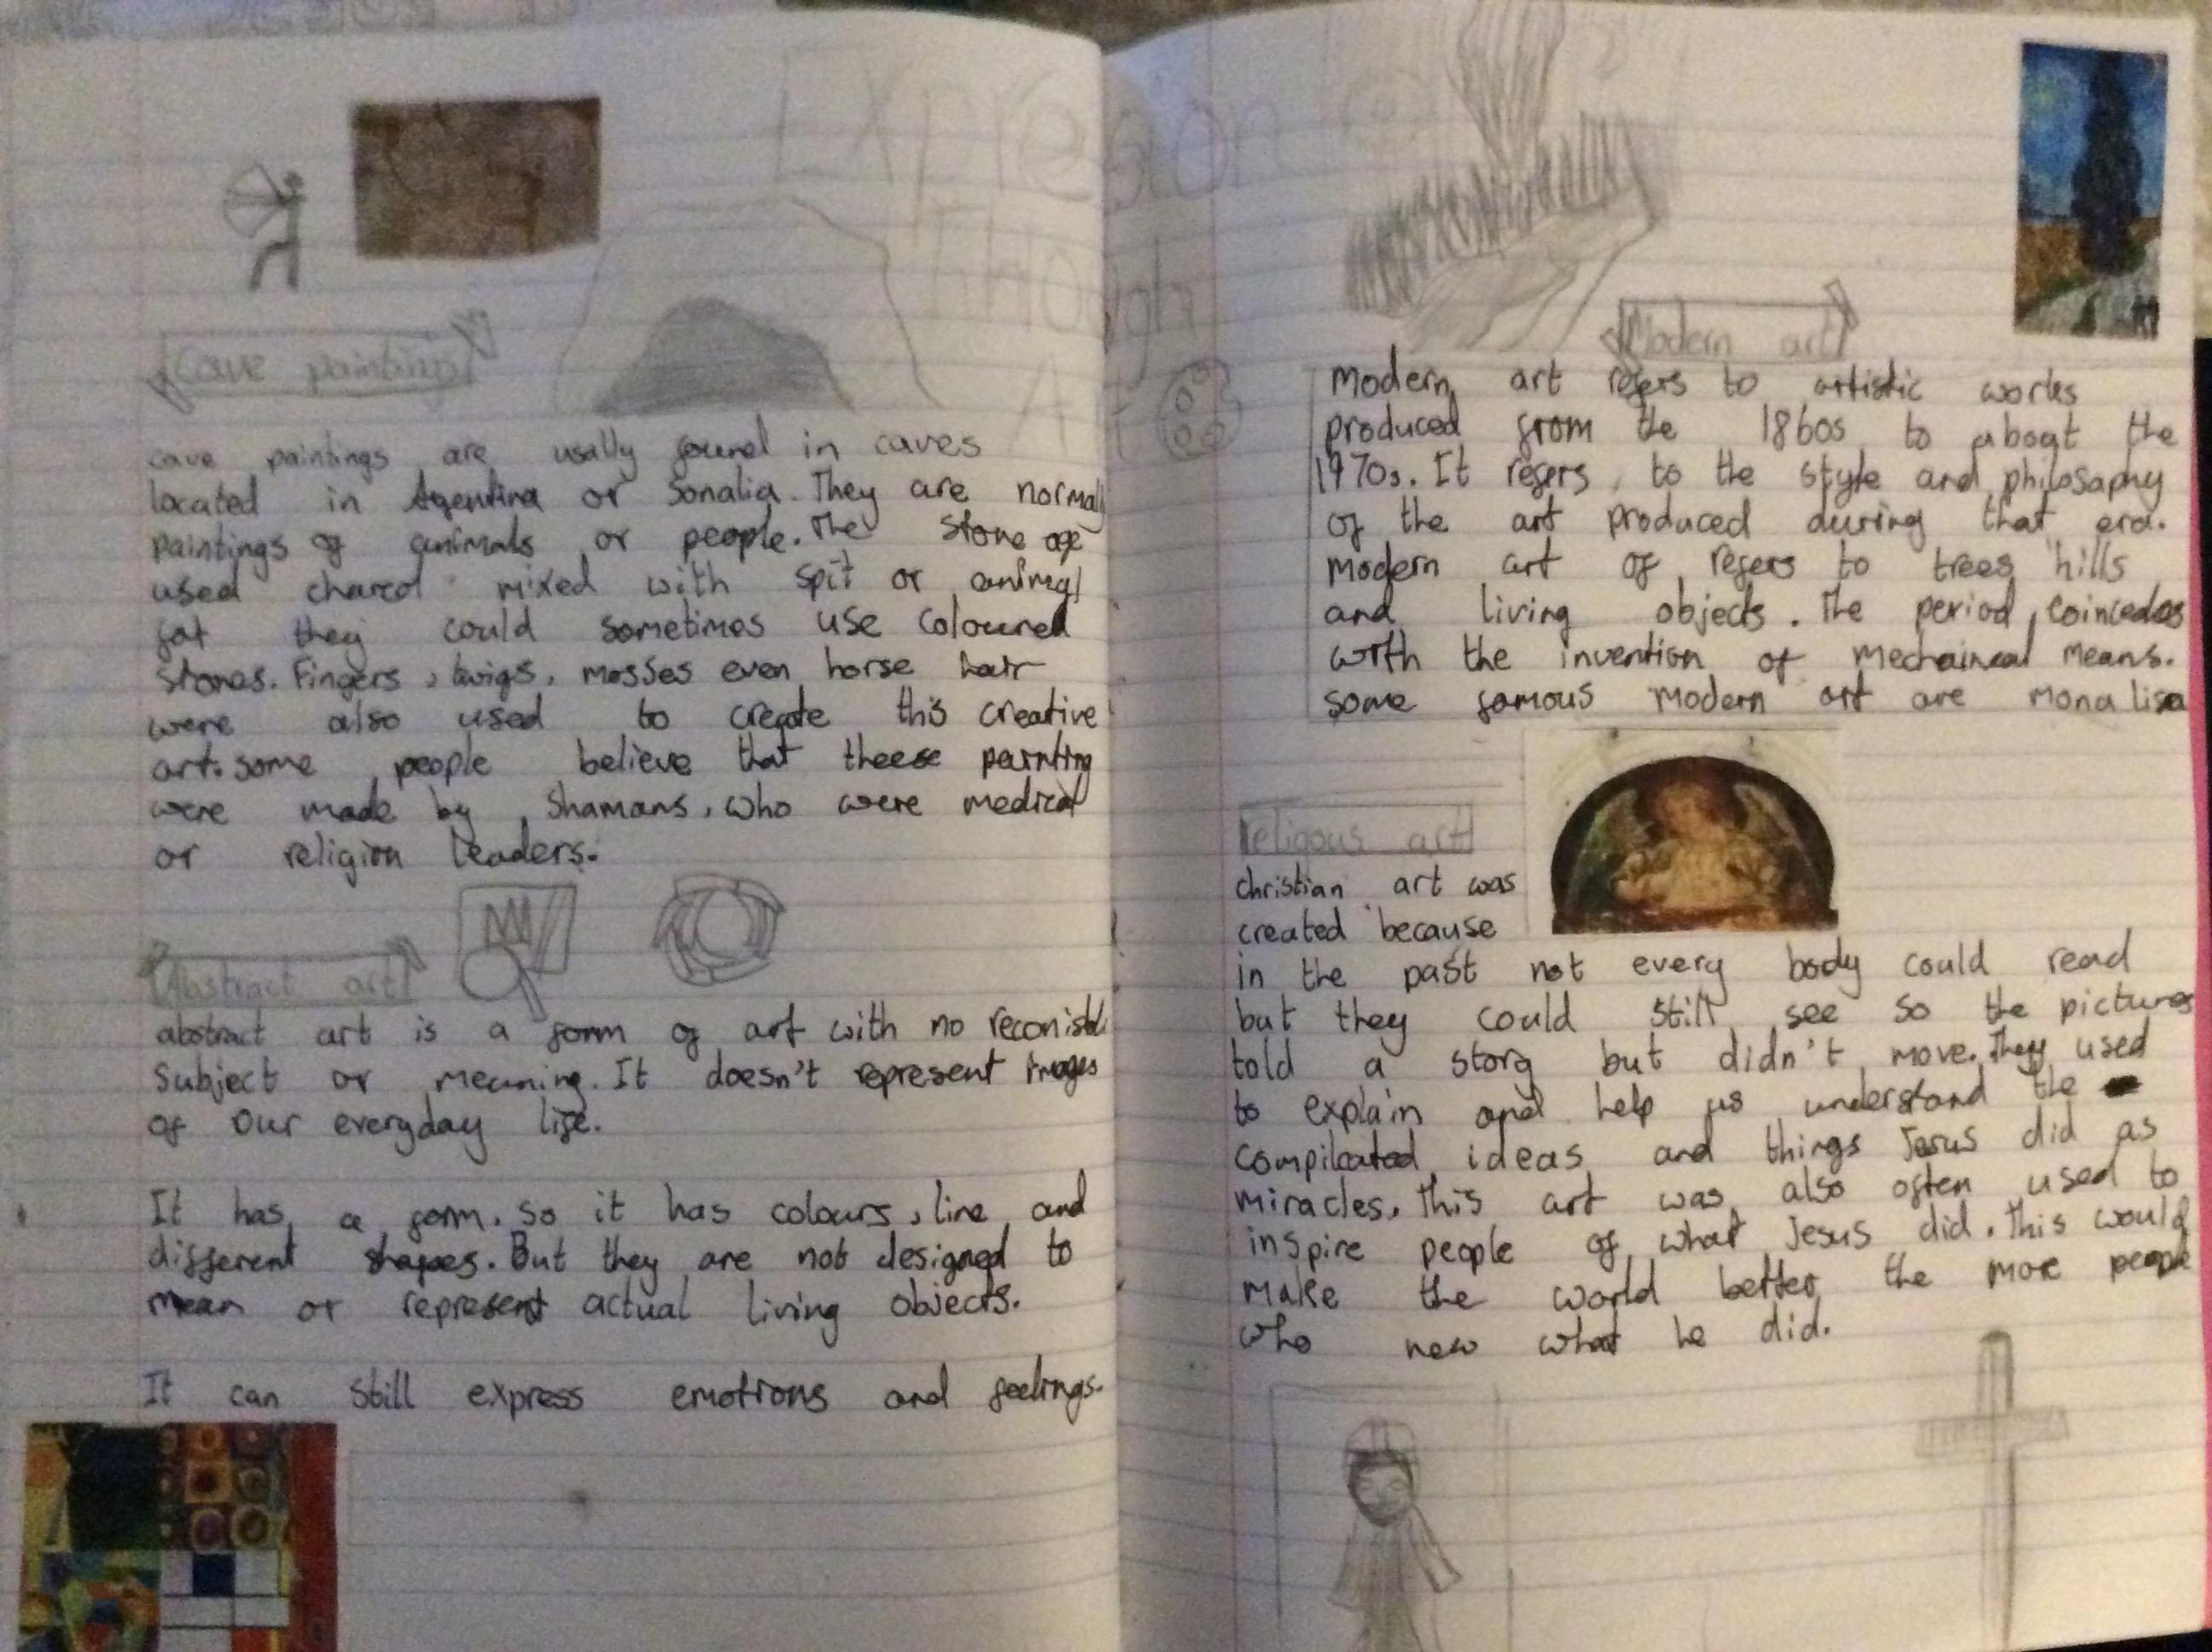 Expression
Through
Art
Cave paintings
cave paintings are usally found in caves
located in Agentina or Somalia. They are normaly
paintings of animals or people. The stone age
used charcol mixed with spit or animal
fat they could sometimes use coloured
stones. Fingers, twigs, mosses even horse hair
were also used to create this creative
art. some people believe that theese painting
were made by shamans, who were medical
or religion leaders.
Abstract art
abstract art is a form of art with no
subject or meaning. It doesn't represent images
of our everyday life.
It has a form. so it has colours, line and
different shapes. But they are not designed to
mean or represent actual living objects.
It can still express emotions and feelings.
Modern art
Modern art refers to artistic works
produced from the 1860s to about the
1970s. It refers to the style and philosaphy
of the art produced during that era.
modern art of refers to trees hills
and living objects. The period coincedes
with the invention of means.
some famous modern art are mona lisa
religous art
christian art was
created because
in the past not every body could read
but they could still see so the pictures
told a story but didn't move. They used
to explain and help us understand the
compilcated ideas and things Jesus did as
miracles. This art was also often used to
inspire people of what Jesus did. This would
make the world better the more people
who new what he did.